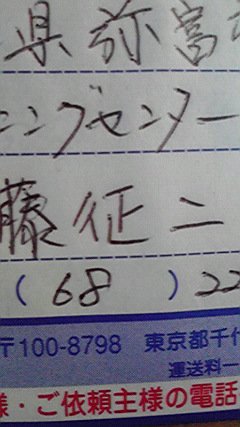 県弥富市
ニングセンター
藤征二
(68)22
〒100-8798 東京都千代
運送料一
様・ご依頼主様の電話